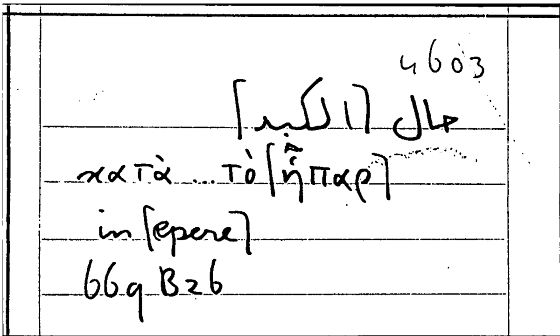 4603
حال [الكبد]
κατὰ ... τὸ [ἧπαρ]
in [epere]
669 B26